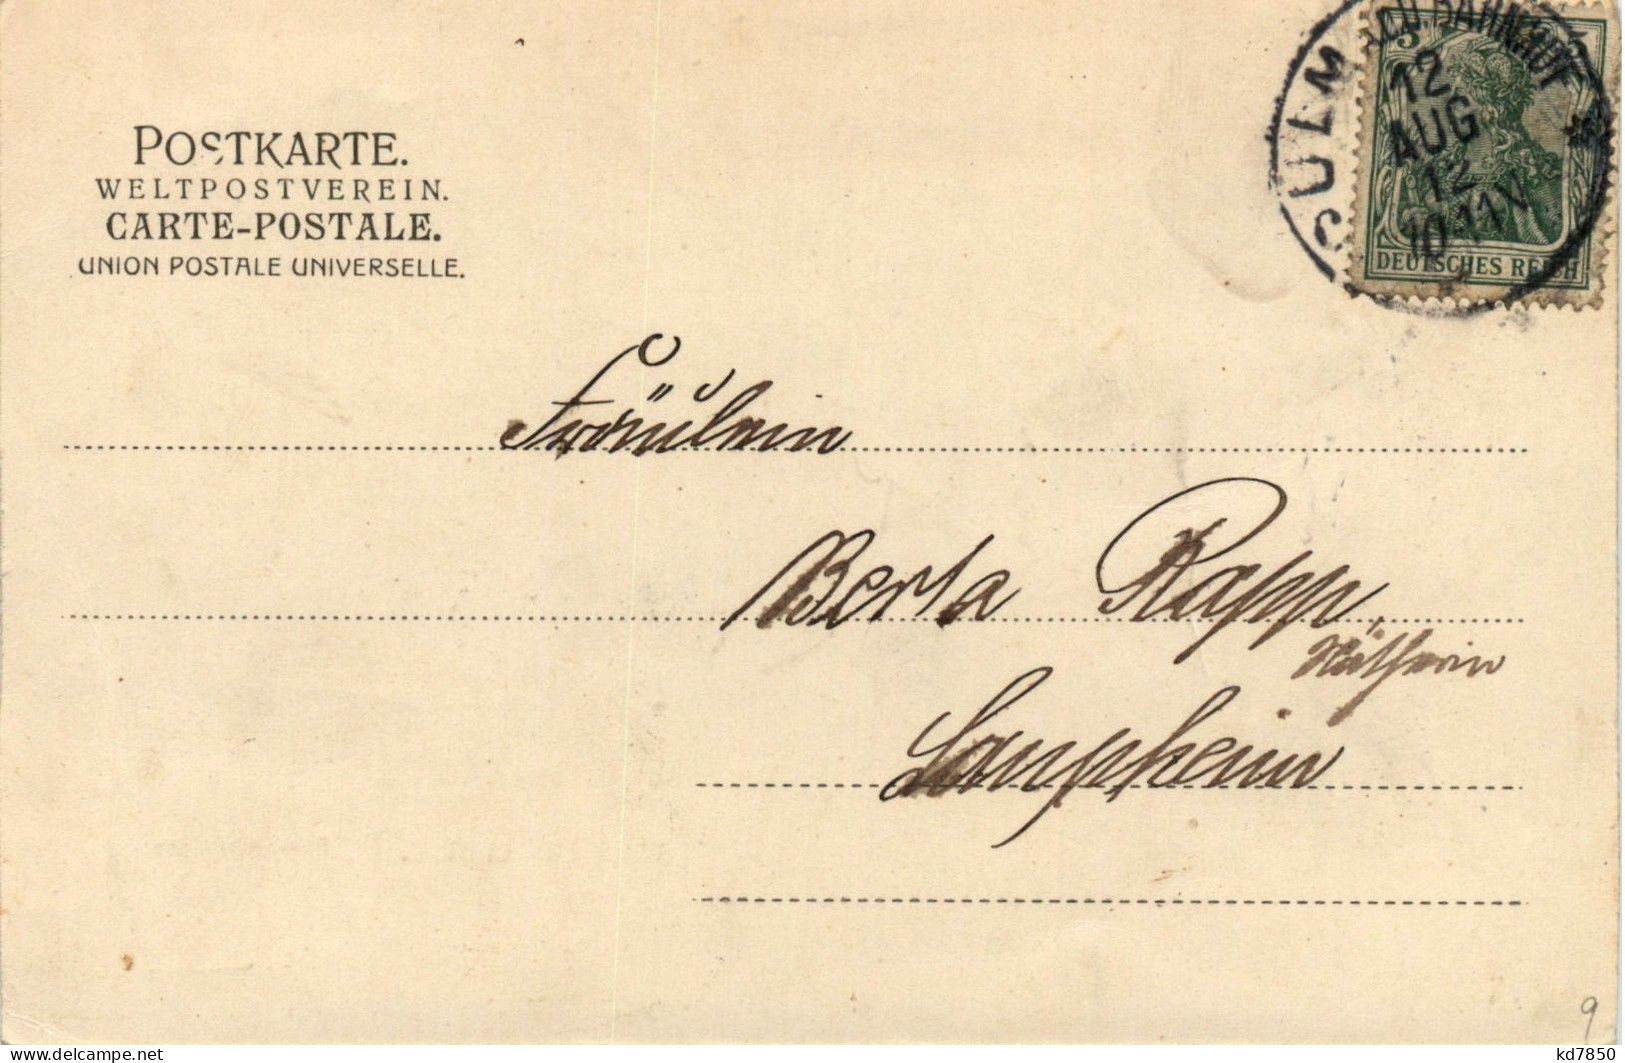 POSTKARTE.
WELTPOSTVEREIN.
CARTE-POSTALE.
UNION POSTALE UNIVERSELLE.
ULM BAHNHOF
12
AUG
12
10-11V
5 5
DEUTSCHES REICH
Fräulein
Berta Rapp,
Näherin
Laupheim
9
kd7850